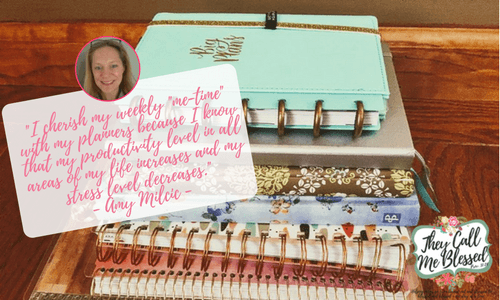 Big
Plans
"I cherish my weekly "me-time"
with my planners because I know
that my productivity level in all
areas of my life increases and my
stress level decreases."
- Amy Milcic -
They Call
Me Blessed